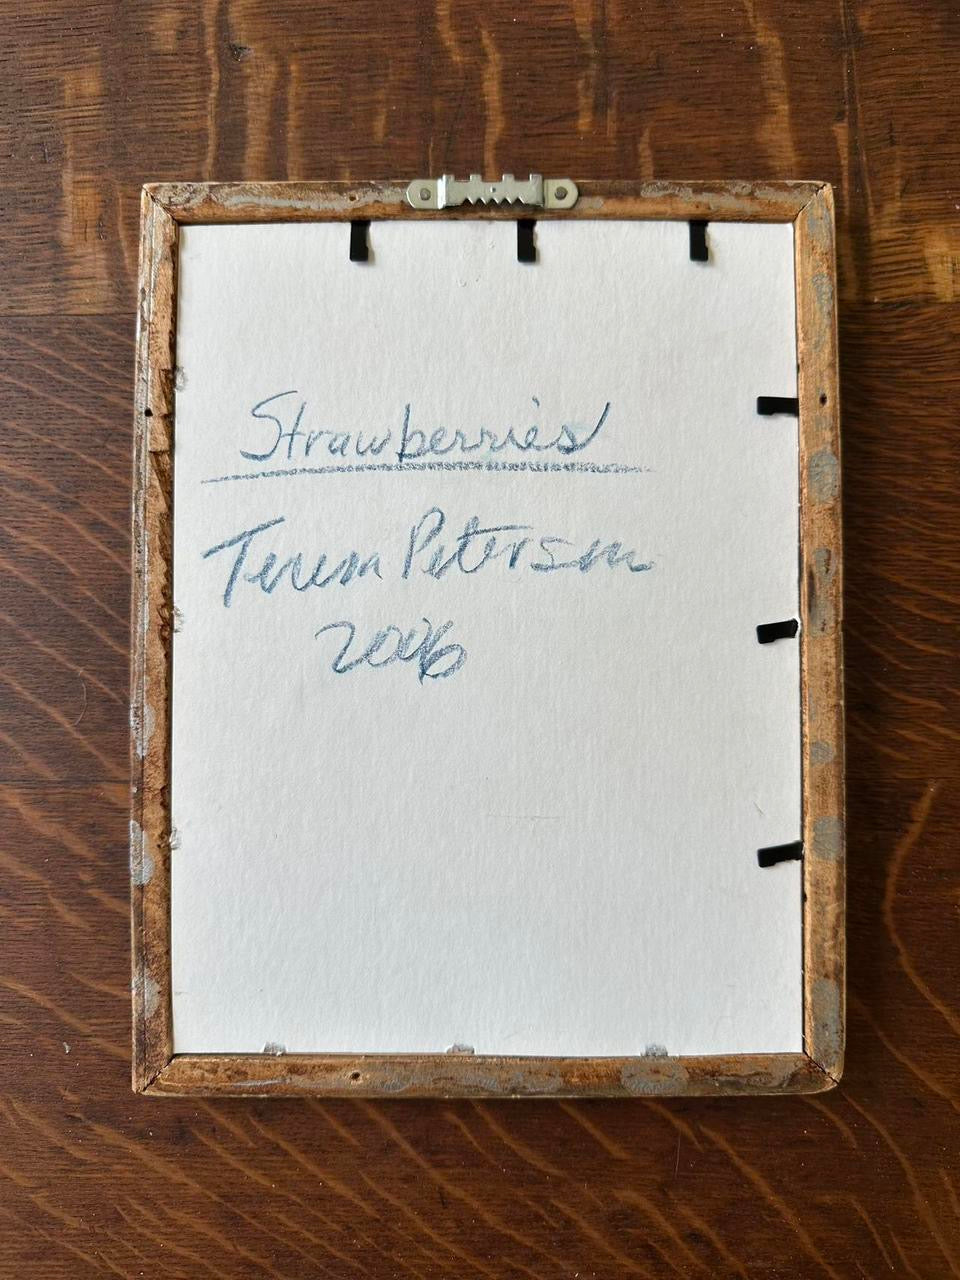 Strawberries
Peterson
2006